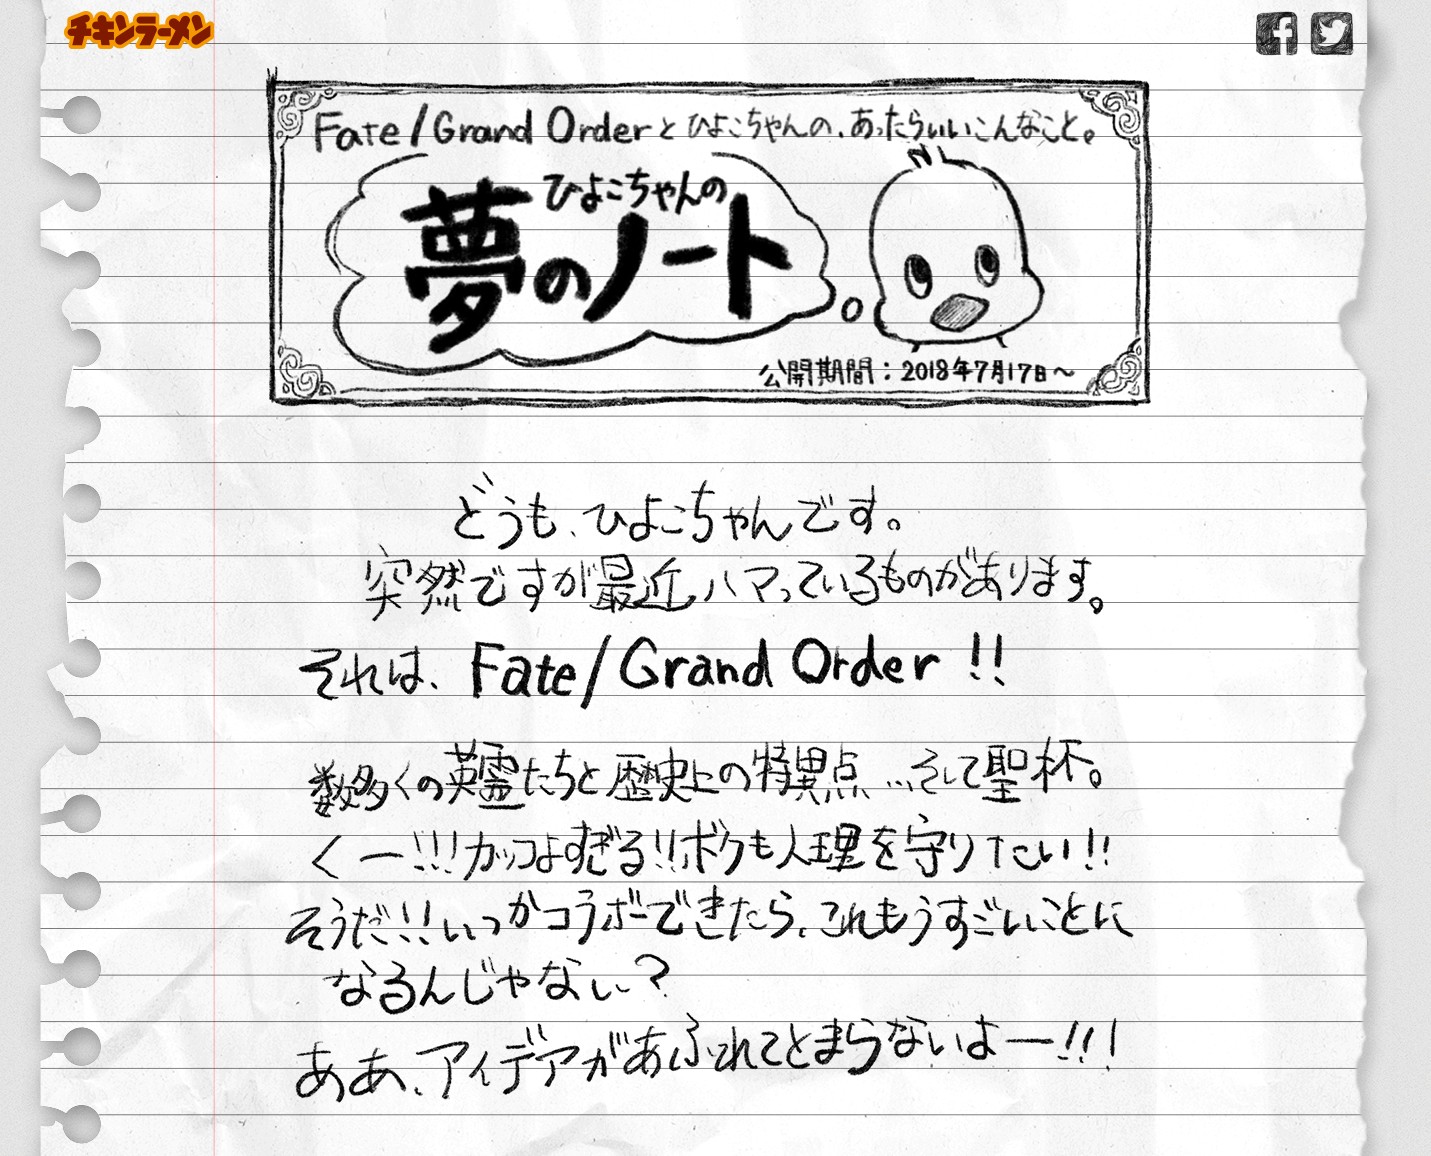 チキンラーメン
Fate/Grand Orderとひよこちゃんの、あったらいいこんなこと。
ひよこちゃんの
夢のノート
公開期間：2018年7月17日～
どうも、ひよこちゃんです。
突然ですが最近ハマっているものがあります。
それは、Fate/Grand Order!!
数多くの英霊たちと歴史上の特異点…そして聖杯。
くー!!!カッコよすぎる!!ボクも人理を守りたい!!
そうだ!!いつかコラボできたら、これもうすごいことに
なるんじゃない？
ああ、アイデアがあふれてとまらないよー!!!